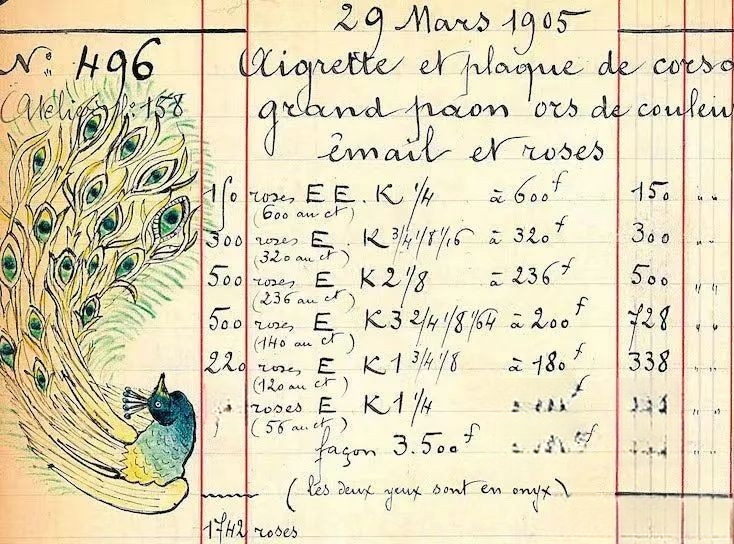 29 Mars 1905
N: 496
Aigrette et plaque de corsa
(Atelier: 158
grand paon ors de couleu
émail et roses
150 roses EE. K 1/4 à 600f 150 " "
(600 au ct)
300 roses E. K 3/4 1/8 1/16 à 320f 300 " "
(320 au ct)
500 roses E K 2 1/8 à 236f 500 " "
(236 au ct)
500 roses E K 3 2/4 1/8 1/64 à 200f 728 " "
(140 au ct)
220 roses E K 1 3/4 1/8 à 180f 338 " "
(120 au ct)
roses E K 1 1/4
(56 au ct)
façon 3.500f
(les deux yeux sont en onyx)
1742 roses